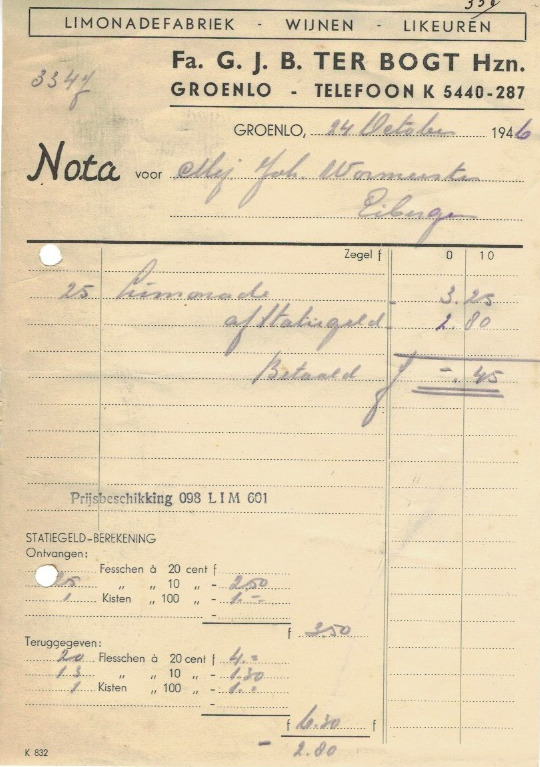 339
LIMONADEFABRIEK - WIJNEN - LIKEUREN
Fa. G. J. B. TER BOGT Hzn.
3347
GROENLO - TELEFOON K 5440-287
GROENLO, 24 October 1946
Nota voor Mej Joh. Wormeester
Eibergen
Zegel f 0 10
25 Limonade - 3.25
af Statiegeld 2.80
Betaald f -.45
Prijsbeschikking 098 LIM 601
STATIEGELD-BEREKENING
Ontvangen:
Fesschen à 20 cent f
25 „ „ 10 „ - 2.50
1 Kisten „ 100 „ - 1.-
-
f 3.50
Teruggegeven:
20 Flesschen à 20 cent f 4.=
13 „ „ 10 „ - 1.30
1 Kisten „ 100 „ - 1.-
-
f 6.30 f
- 2.80
K 832